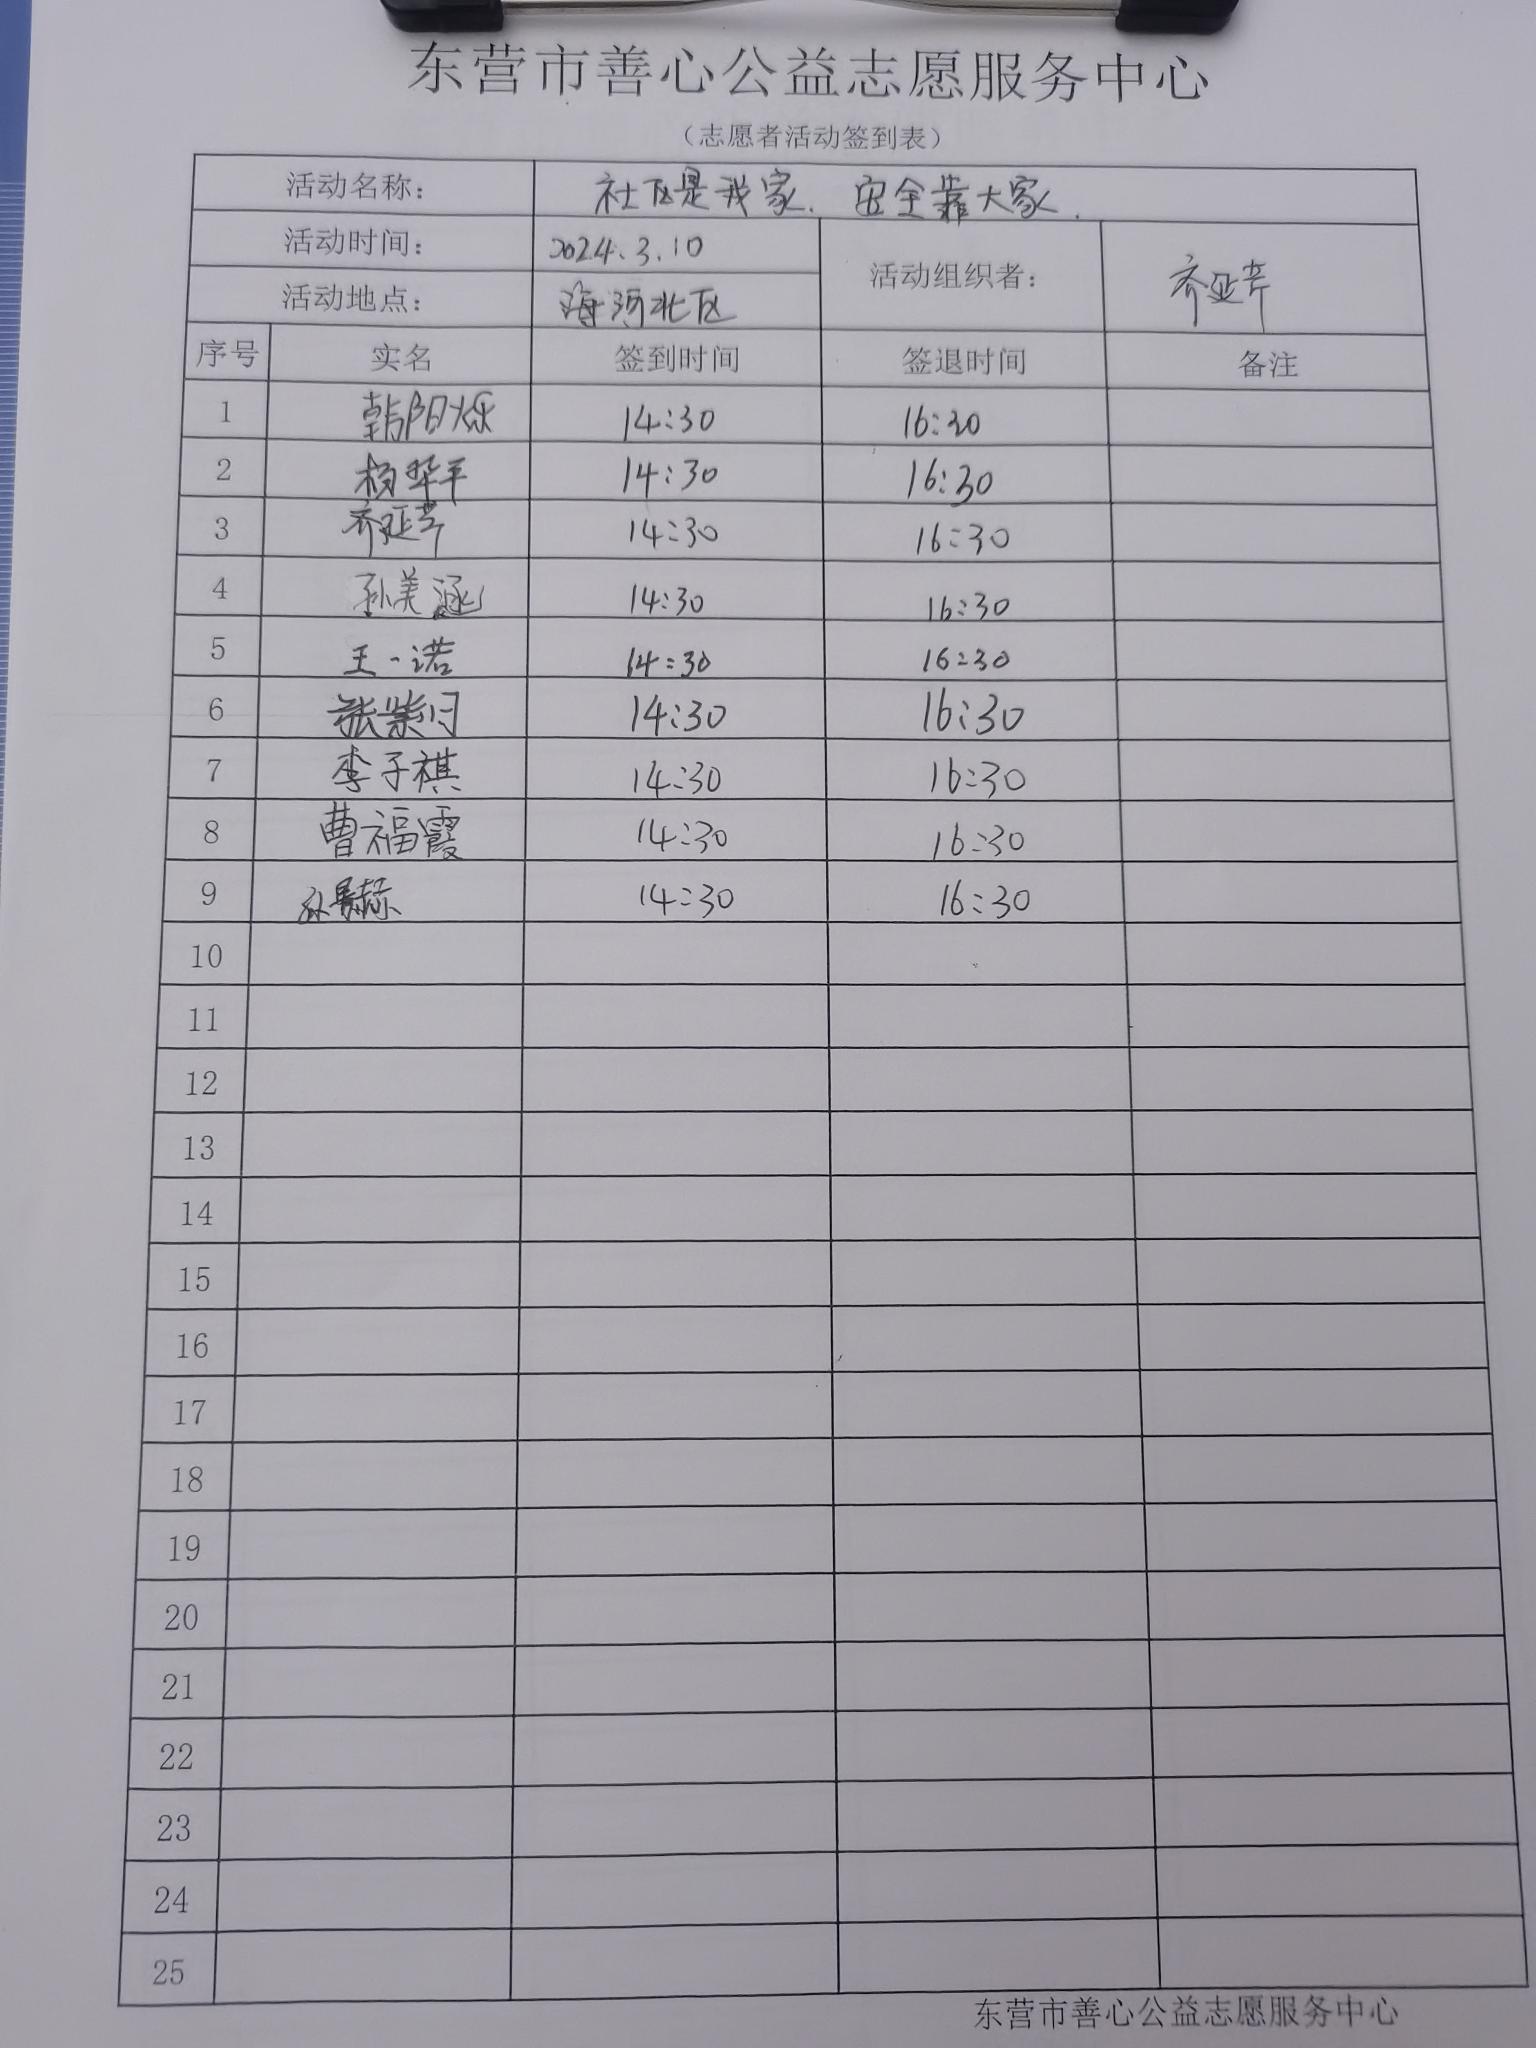 东营市善心公益志愿服务中心
（志愿者活动签到表）
活动名称： 社区是我家. 安全靠大家.
活动时间： 2024.3.10 活动组织者： 齐延芹
活动地点： 海河北区
序号 实名 签到时间 签退时间 备注
1 韩阳烁 14:30 16:30
2 杨华平 14:30 16:30
3 齐延芹 14:30 16:30
4 孙美涵 14:30 16:30
5 王一诺 14:30 16:30
6 张紫归 14:30 16:30
7 李子祺 14:30 16:30
8 曹福霞 14:30 16:30
9 14:30 16:30
10
11
12
13
14
15
16
17
18
19
20
21
22
23
24
25
东营市善心公益志愿服务中心